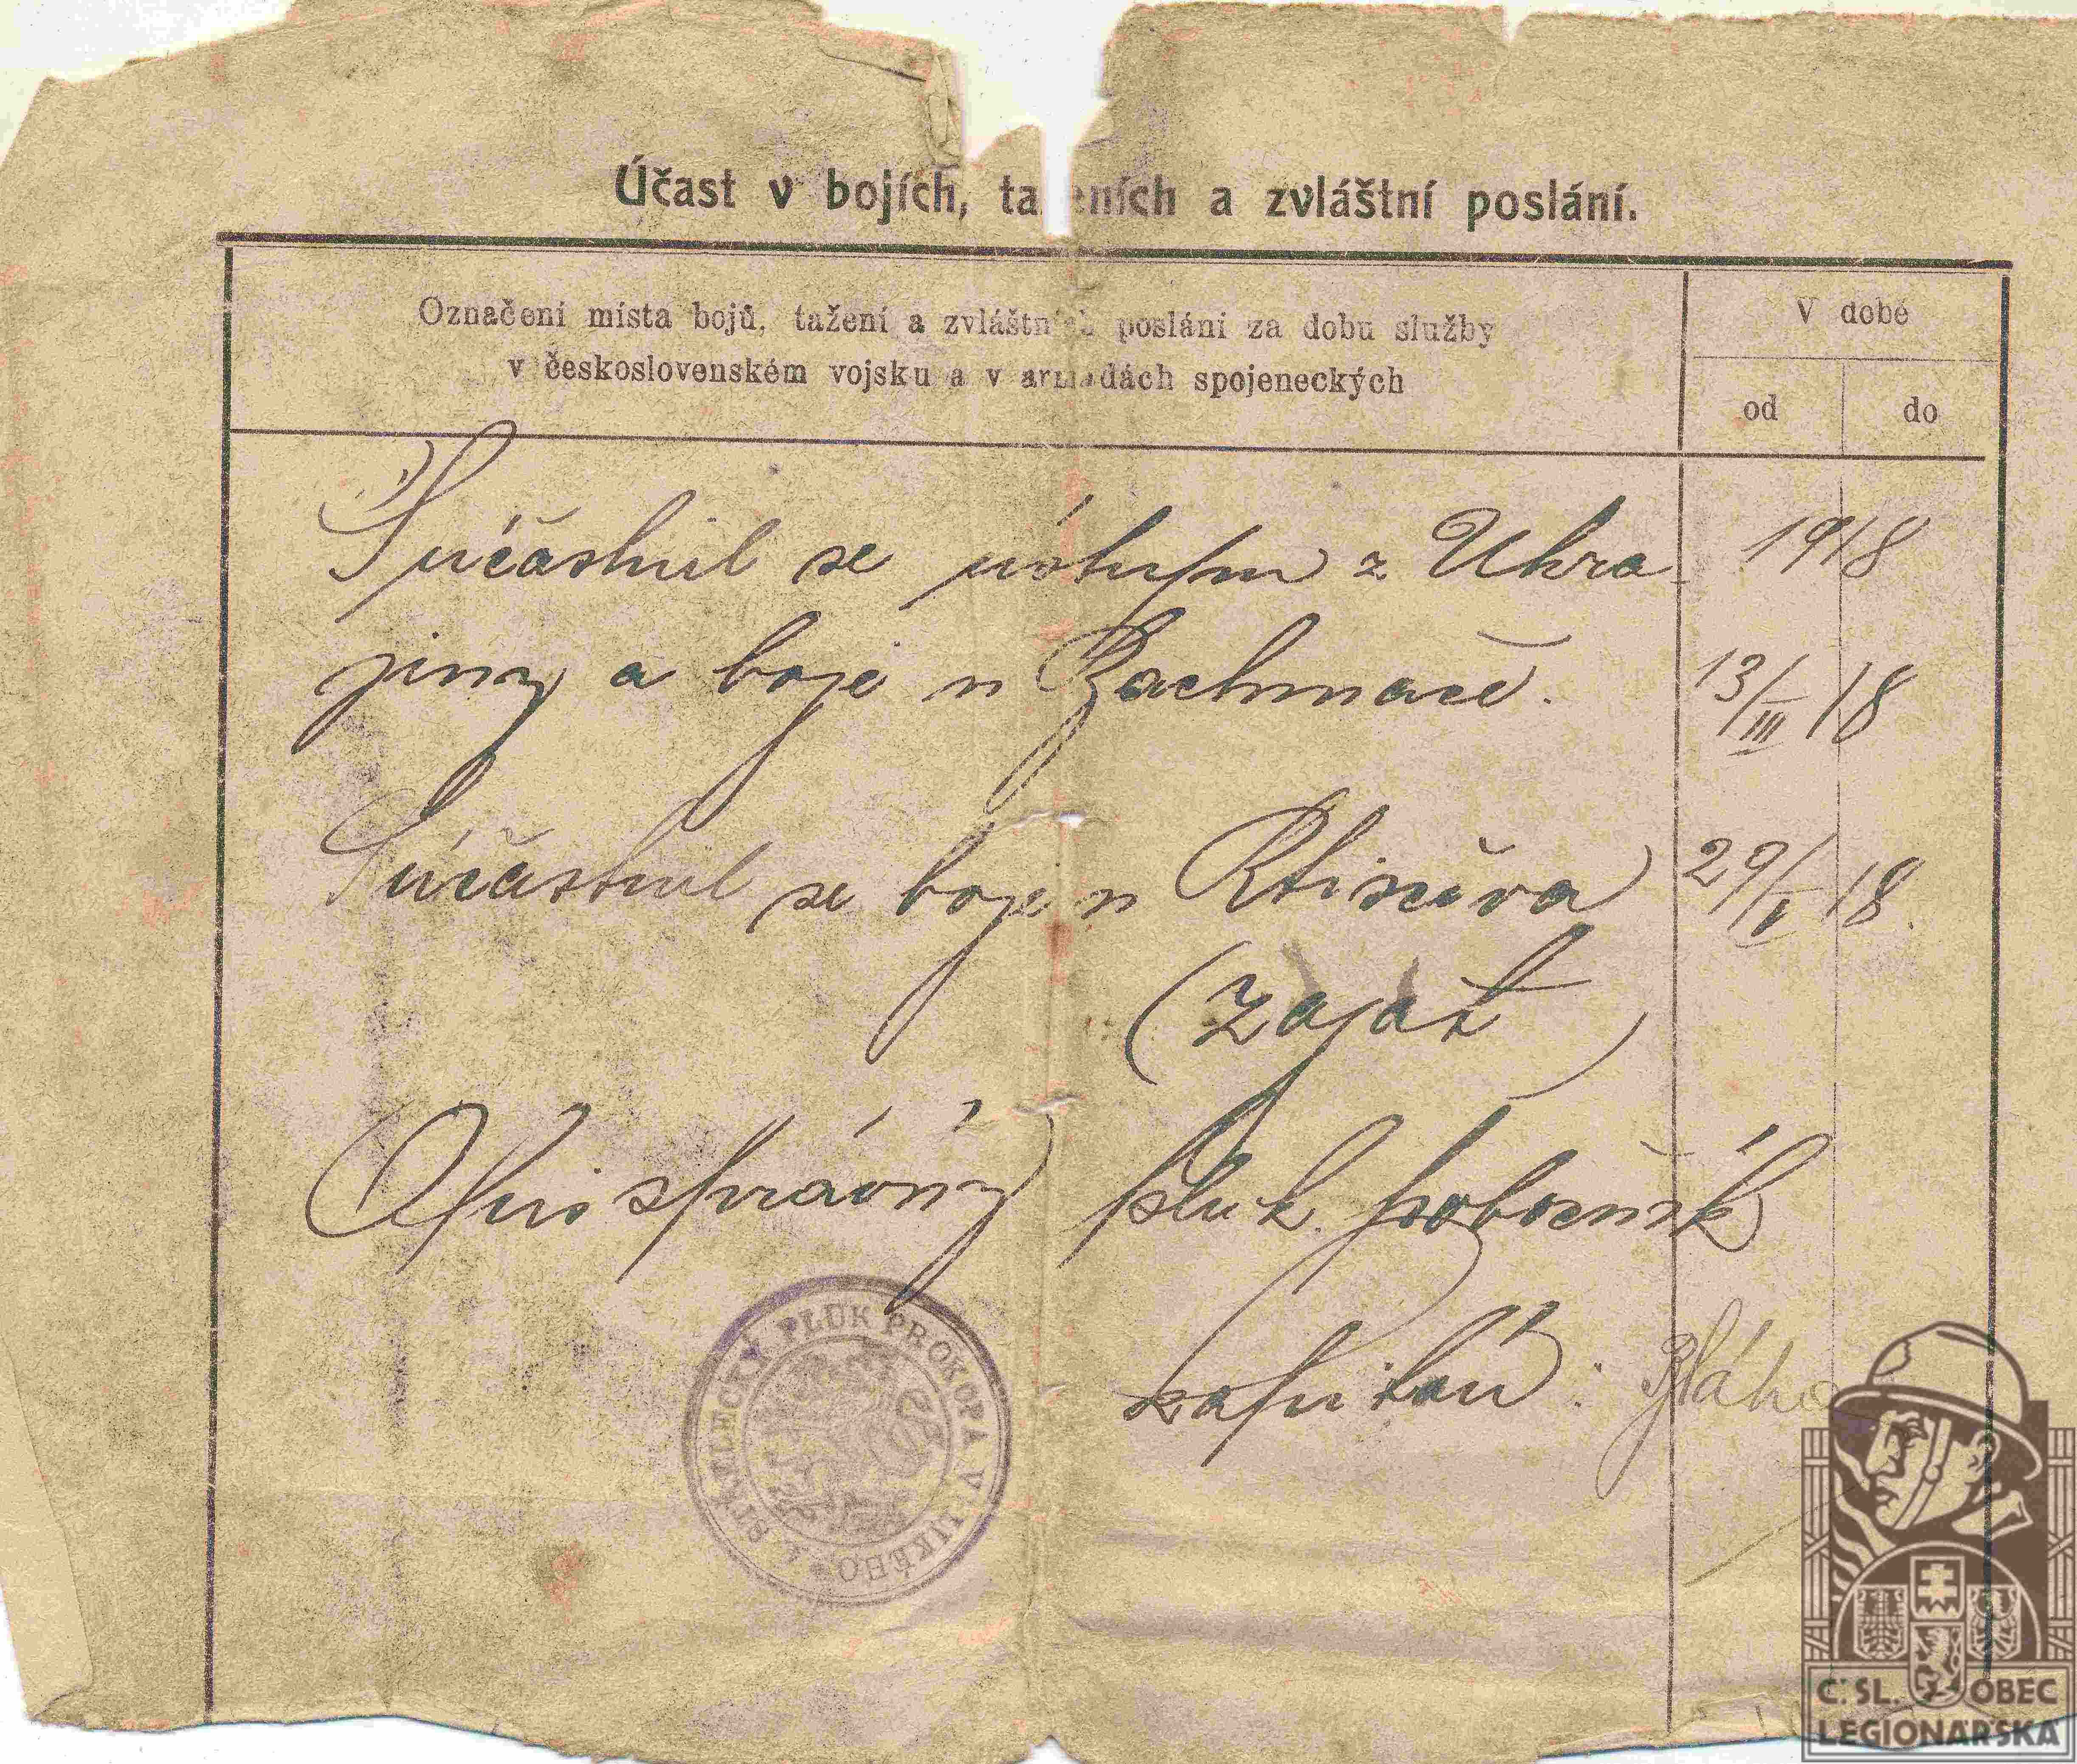 Účast v bojích, ta eních a zvláštní poslání.
Označení místa bojů, tažení a zvláštních poslání za dobu služby
v československém vojsku a v armádách spojeneckých
V době
od
do
Súčastnil se ústupu z Ukra 1918
jiny a boje u Bachmače. 13/III 18
Súčastnil se boje u Rtiščeva 29/V 18.
(zajat)
Opis správný pluk. pobočník
kapitán: Bláha
STŘELECKÝ PLUK PROKOPA VELIKÉHO
Č. SL. OBEC
LEGIONÁŘSKÁ